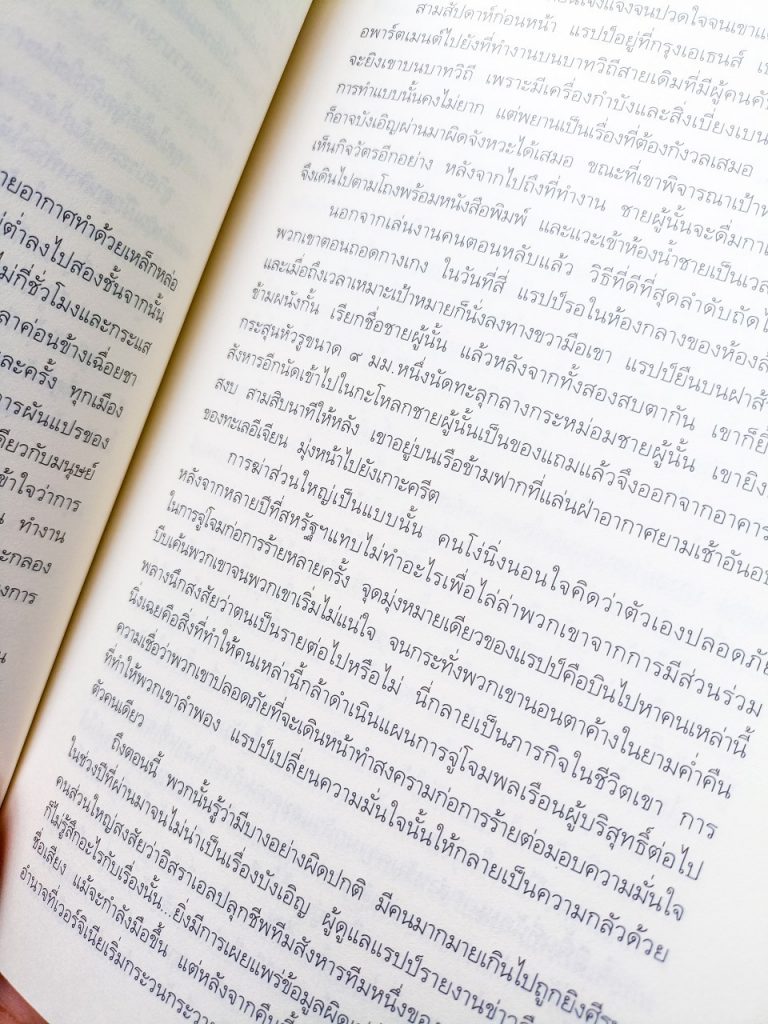 ายอากาศทำด้วยเหล็กหล่อ
ต่ำลงไปสองชั้นจากนั้น
ไม่กี่ชั่วโมงและกระแส
ลาค่อนข้างเฉื่อยชา
ละครั้ง ทุกเมือง
การผันแปรของ
ดียวกับมนุษย์
ข้าใจว่าการ
ทำงาน
ะกลอง
งการ
สามสัปดาห์ก่อนหน้า แรปป์อยู่ที่กรุงเอเธนส์
อพาร์ตเมนต์ไปยังที่ทำงานบนบาทวิถีสายเดิมที่มีผู้คนคั
จะยิงเขาบนบาทวิถี เพราะมีเครื่องกำบังและสิ่งเบี่ยงเบน
การทำแบบนั้นคงไม่ยาก แต่พยานเป็นเรื่องที่ต้องกังวลเสมอ
ก็อาจบังเอิญผ่านมาผิดจังหวะได้เสมอ ขณะที่เขาพิจารณาเป้าห
เห็นกิจวัตรอีกอย่าง หลังจากไปถึงที่ทำงาน ชายผู้นั้นจะดื่มกา
จึงเดินไปตามโถงพร้อมหนังสือพิมพ์ และแวะเข้าห้องน้ำชายเป็นเวล
นอกจากเล่นงานคนตอนหลับแล้ว วิธีที่ดีที่สุดลำดับถัดไ
พวกเขาตอนถอดกางเกง ในวันที่สี่ แรปป์รอในห้องกลางของห้องส้
และเมื่อถึงเวลาเหมาะเป้าหมายก็นั่งลงทางขวามือเขา แรปป์ยืนบนฝาส้ว
ข้ามผนังกั้น เรียกชื่อชายผู้นั้น แล้วหลังจากทั้งสองสบตากัน เขาก็ยิ้
กระสุนหัวรูขนาด ๙ มม.หนึ่งนัดทะลุกลางกระหม่อมชายผู้นั้น เขายิง
สังหารอีกนัดเข้าไปในกะโหลกชายผู้นั้นเป็นของแถมแล้วจึงออกจากอาคาร
สงบ สามสิบนาทีให้หลัง เขาอยู่บนเรือข้ามฟากที่แล่นฝ่าอากาศยามเช้าอันอบ
ของทะเลอีเจียน มุ่งหน้าไปยังเกาะครีต
การฆ่าส่วนใหญ่เป็นแบบนั้น คนโง่นิ่งนอนใจคิดว่าตัวเองปลอดภัย
หลังจากหลายปีที่สหรัฐฯแทบไม่ทำอะไรเพื่อไล่ล่าพวกเขาจากการมีส่วนร่วม
ในการจู่โจมก่อการร้ายหลายครั้ง จุดมุ่งหมายเดียวของแรปป์คือบินไปหาคนเหล่านี้
บีบเค้นพวกเขาจนพวกเขาเริ่มไม่แน่ใจ จนกระทั่งพวกเขานอนตาค้างในยามค่ำคืน
พลางนึกสงสัยว่าตนเป็นรายต่อไปหรือไม่ นี่กลายเป็นภารกิจในชีวิตเขา การ
นิ่งเฉยคือสิ่งที่ทำให้คนเหล่านี้กล้าดำเนินแผนการจู่โจมพลเรือนผู้บริสุทธิ์ต่อไป
ความเชื่อว่าพวกเขาปลอดภัยที่จะเดินหน้าทำสงครามก่อการร้ายต่อมอบความมั่นใจ
ที่ทำให้พวกเขาลำพอง แรปป์เปลี่ยนความมั่นใจนั้นให้กลายเป็นความกลัวด้วย
ตัวคนเดียว
ถึงตอนนี้ พวกนั้นรู้ว่ามีบางอย่างผิดปกติ มีคนมากมายเกินไปถูกยิงศีรษ
ในช่วงปีที่ผ่านมาจนไม่น่าเป็นเรื่องบังเอิญ ผู้ดูแลแรปป์รายงานข่าวลือ
คนส่วนใหญ่สงสัยว่าอิสราเอลปลุกชีพทีมสังหารทีมหนึ่งของ
ก็ไม่รู้สึกอะไรกับเรื่องนั้น...ยิ่งมีการเผยแพร่ข้อมูลผิดๆ
ชื่อเสียง แม้จะกำลังมือขึ้น แต่หลังจากคืนนี้
อำนาจที่เวอร์จิเนียเริ่มกระวนกระวา